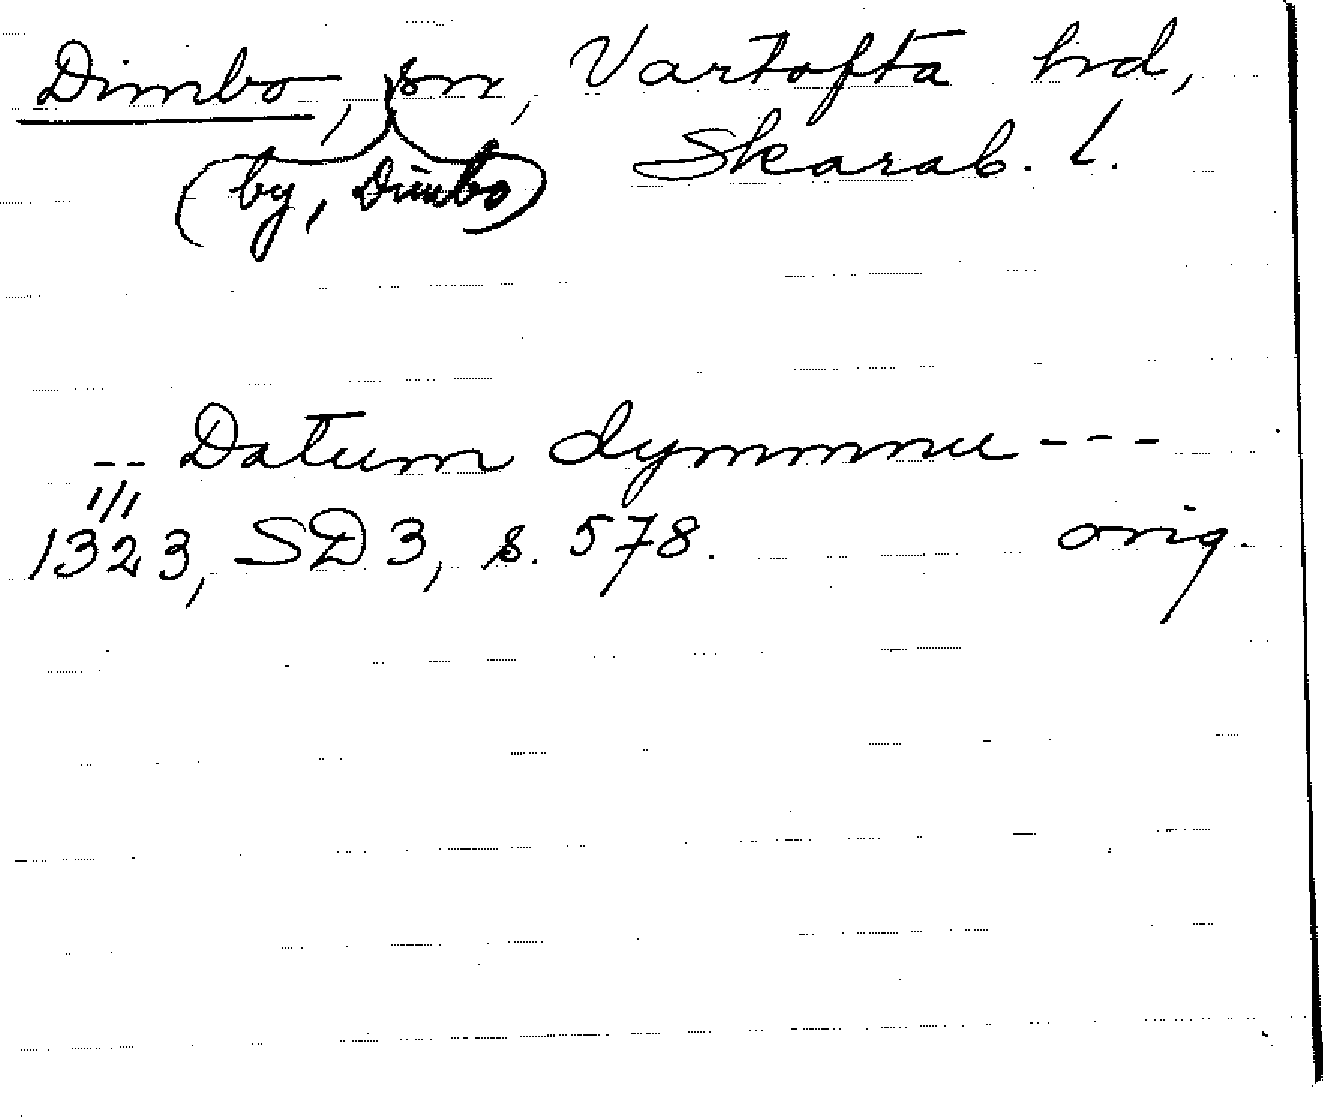 Dimbo, sn, Vartofta hd,
(by, Dimbo) Skarab. l.
-- Datum dymmmu ---
1/1
1323, SD 3, s. 578. orig.